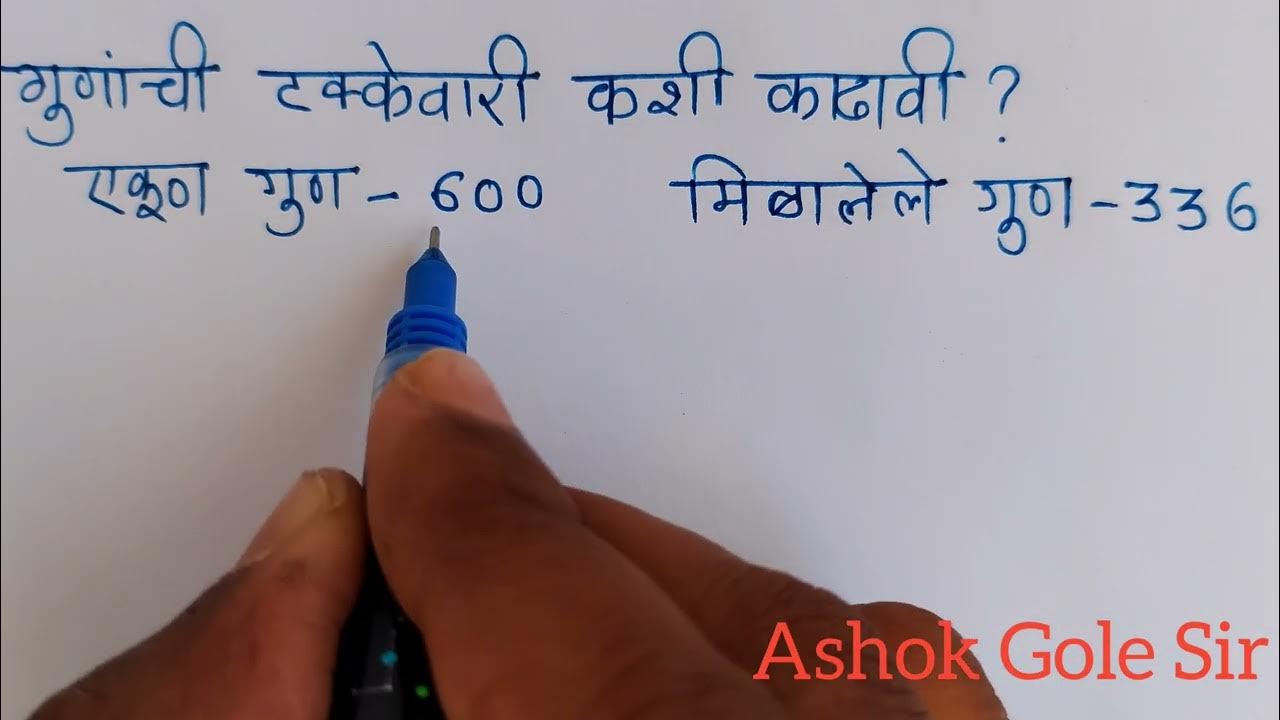 गुणांची टक्केवारी कशी काढावी ?
एकूण गुण - 600 मिळालेले गुण - 336
Ashok Gole Sir